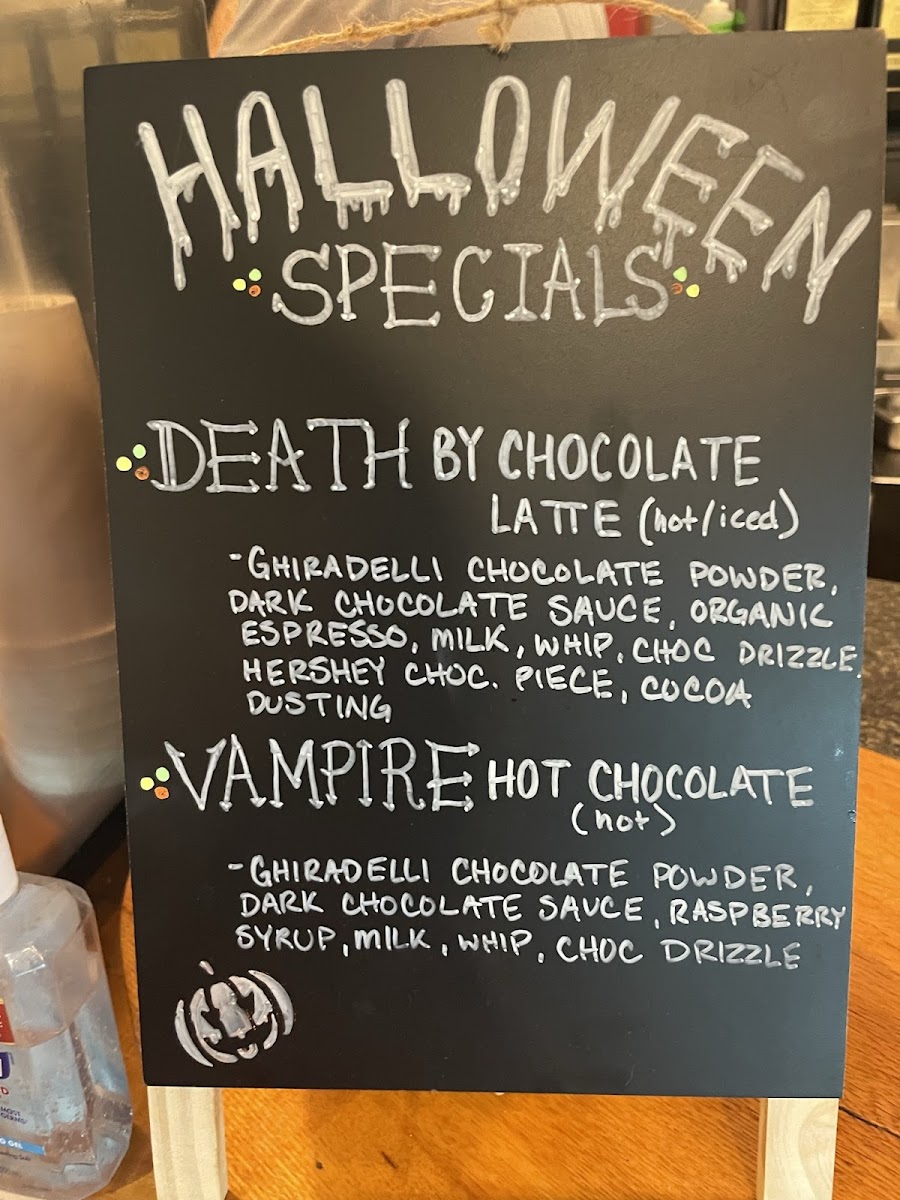 HALLOWEEN
SPECIALS
DEATH BY CHOCOLATE
LATTE (hot/iced)
-GHIRADELLI CHOCOLATE POWDER,
DARK CHOCOLATE SAUCE, ORGANIC
ESPRESSO, MILK, WHIP, CHOC DRIZZLE,
HERSHEY CHOC. PIECE, COCOA
DUSTING
VAMPIRE HOT CHOCOLATE
(hot)
-GHIRADELLI CHOCOLATE POWDER,
DARK CHOCOLATE SAUCE, RASPBERRY
SYRUP, MILK, WHIP, CHOC DRIZZLE
MOST
GERMS
GEL